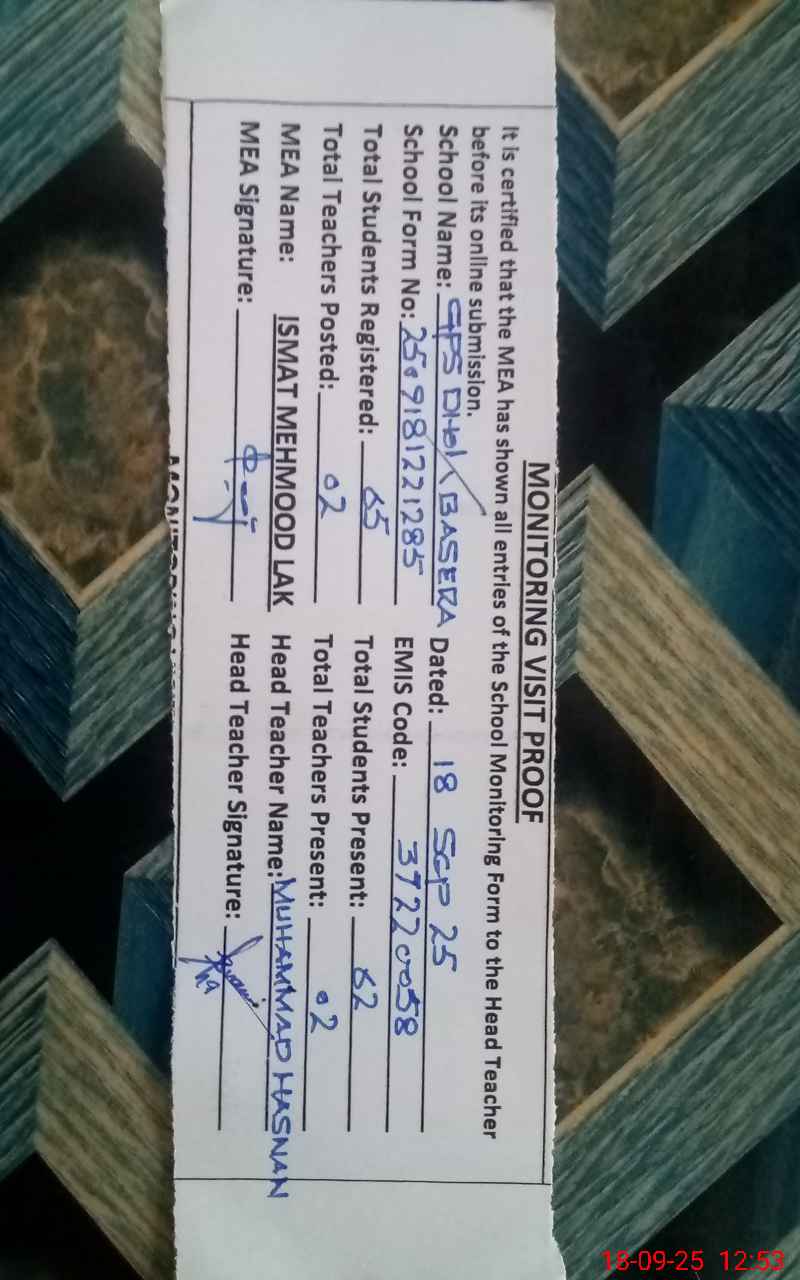 MONITORING VISIT PROOF
It is certified that the MEA has shown all entries of the School Monitoring Form to the Head Teacher
before its online submission.
School Name: GPS DHOK BASERA Dated: 18 Sep 25
School Form No: 2509181221285 EMIS Code: 37220058
Total Students Registered: 65 Total Students Present: 62
Total Teachers Posted: 02 Total Teachers Present: 02
MEA Name: ISMAT MEHMOOD LAK Head Teacher Name: MUHAMMAD HASNAN
MEA Signature: Head Teacher Signature:
18-09-25 12:53